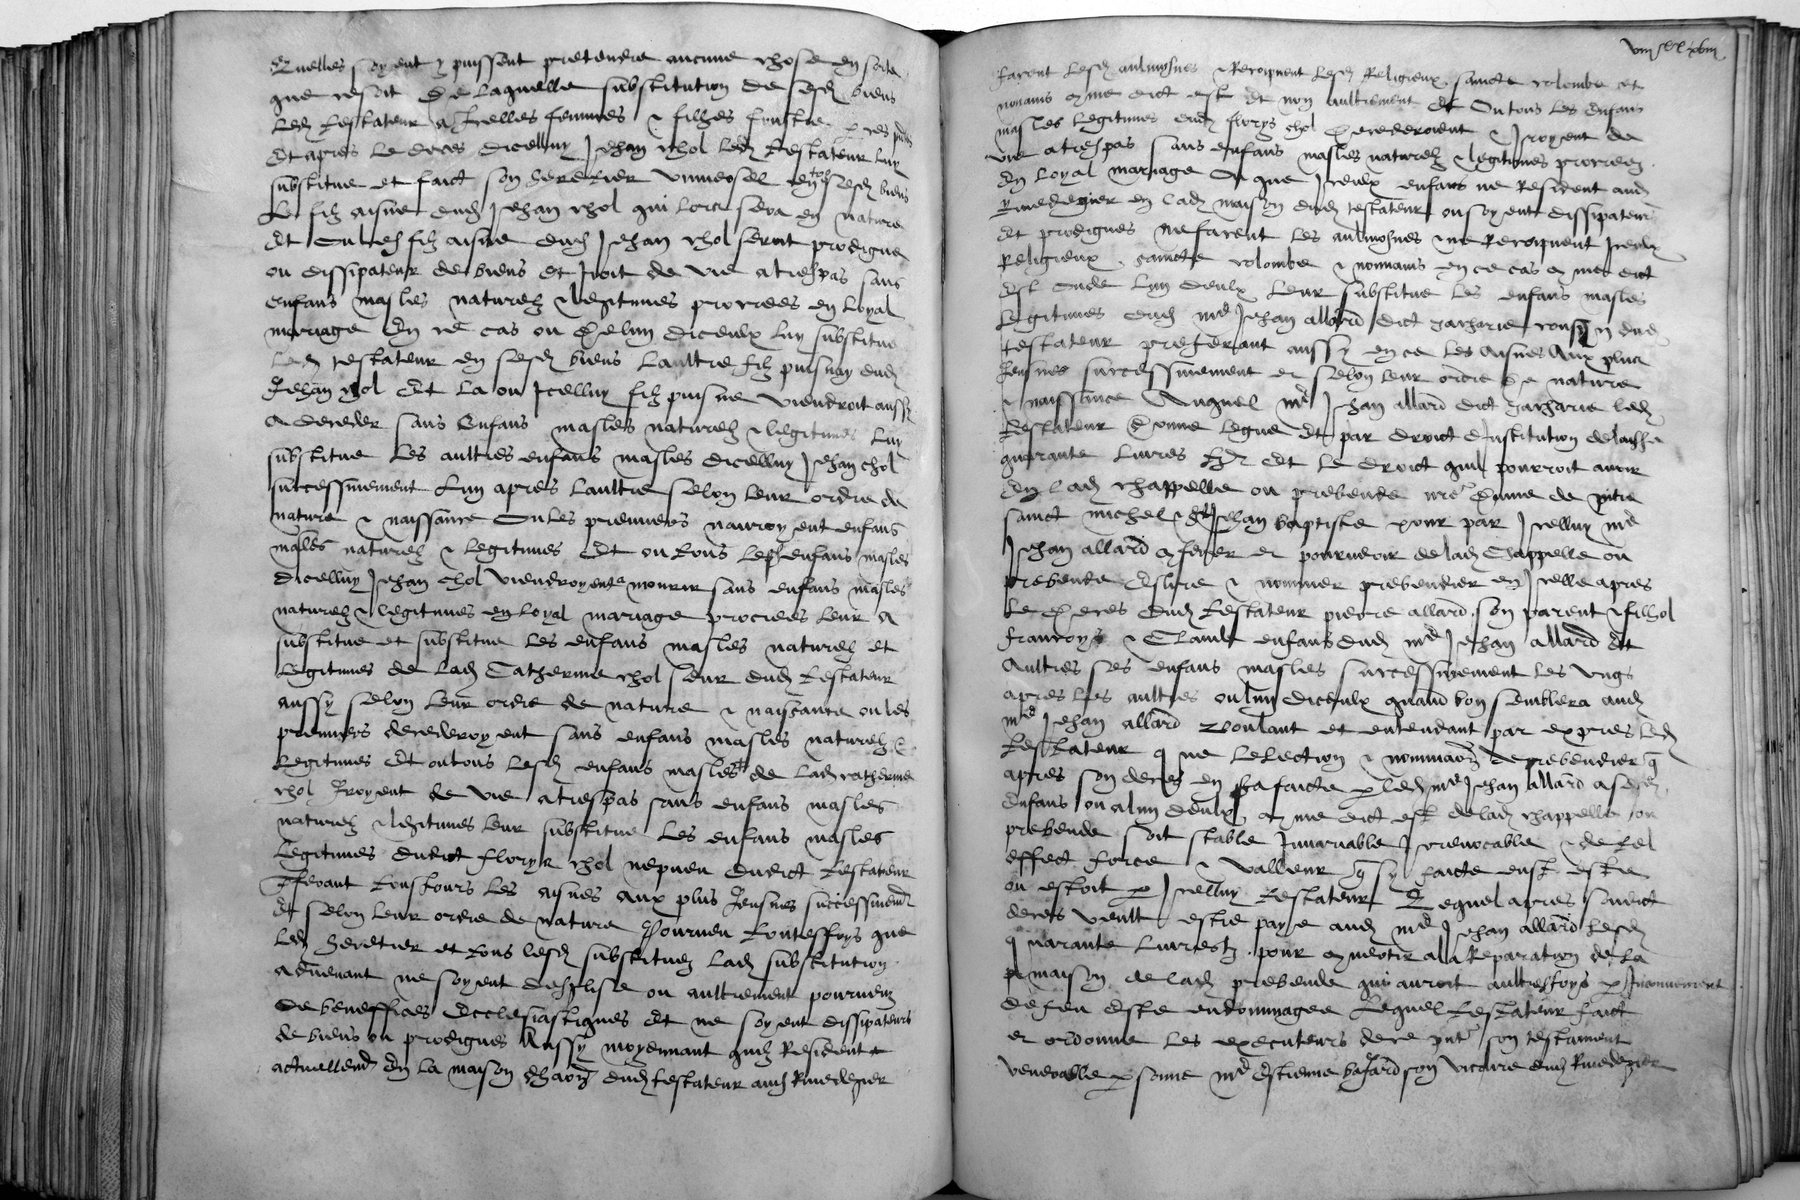 quelles soyent y puissent pretendre aucune chose en sorte
que ce soit De laquelle substitution de sesd biens
Led testateur a femmes & filhes
Et apres le deces dicelluy Jehan chol led testateur luy
substitue et faict son heretier universel en sesd biens
Le filz aisne dud Jehan chol qui lors sera en nature
Et filz aisne dud Jehan chol seroit prodigue
ou dissipateur de biens et iroit de vie a trespas sans
enfans masles naturelz & legitimes procrees en loyal
mariage En ce cas ou de lun diceulx luy substitue
Led testateur en sesd biens Laultre filz puisnay dud
Jehan chol Et la ou Icelluy filz puisne viendroit aussy
a deceder sans enfans masles naturelz & legitimes luy
substitue les aultres enfans masles dicelluy Jehan chol
successivement lun apres laultre selon leur ordre de
nature & naissance Ou les premiers nauroyent enfans
masles naturelz & legitimes Et ou tous lesd enfans masles
dicelluy Jehan chol viendroyent a mourir sans enfans masles
naturelz & legitimes en loyal mariage procrees leur a
substitue et substitue les enfans masles naturelz et
legitimes de lad Catherine chol seur dud testateur
aussy selon leur ordre de nature & naissance ou les
premiers decederoyent sans enfans masles naturelz &
legitimes Et ou tous lesd enfans masles de lad catherine
chol Iroyent de vie a trespas sans enfans masles
naturelz & legitimes leur substitue les enfans masles
legitimes dudict florys chol nepveu dudict testateur
tousjours les aisnes aux plus Jeusnes successivemt
Et selon leur ordre de nature Pourveu touteffoys que
led heretier et tous lesd substituez lad substitution
advenant ne soyent desglise ou aultrement pourveuz
de beneffices Ecclesiastiques Et ne soyent dissipateurs
de biens ou prodigues Aussy moyennant quilz resident
actuellemt En la maison dud testateur aud Rivedegier
facent lesd aulmosnes & recoipvent lesd Religieux saincte colombe et
nonains come dict est Et non aultrement Et Ou tous les enfans
masles legitimes dud florys chol decederoient & Iroyent de
vie a trespas sans enfans masles naturelz & legitimes procreez
En loyal mariage Ou que Iceulx enfans ne resident aud
Rivedegier en lad maison dud testateur ou soyent dissipateurs
Et prodigues ne facent les aulmosnes & ne recoipvent Iceulx
Religieux saincte colombe & nonnains en ce cas come dict
Est lun deulx leur substitue les enfans masles
legitimes dud me Jehan allard dict zacharie cousin dud
testateur preferant aussy en ce les aisnes Aux plus
Jeusnes successivement et selon leur ordre de nature
& naissance Auquel me Jehan allard dict zacharie led
testateur Donne legue Et par droict dInstitution delaisse
quarante livres Et le droict quil pourroit avoir
En lad chappelle ou prebende de
sainct michel & st Jehan baptiste pour par Icelluy me
Jehan allard conferer et pourveoir de lad Chappelle ou
prebende Eslire & nommer prebendier en Icelle apres
le deces dud testateur pierre allard son parent & filhol
francoys & Claude enfans dud me Jehan allard Et
Aultres ses enfans masles successivement les ungs
apres les aultres ou lun diceulx quand bon semblera aud
me Jehan allard Voulant et entendant par expres led
testateur que lellection & nominaon de prebendier
apres son deces en sa faicte p led me Jehan allard a sesd
Enfans ou a lun deulx come dict est de lad chappelle ou
prebende soit stable Invariable Irrevocable & de tel
effect force & valleur que sy faicte eust estee
ou estoit p Icelluy testateur Lequel apres sondict
deces veult estre paye aud me Jehan allard lesd
quarante livres pour convertir a la Reparation de la
maison de lad prebende qui auroit aultresfoys p Inconvenient
de feu este endommagee Lequel testateur faict
et ordonne les executeurs de ce pnt son testament
venerable psonne me Estienne son vicaire dud Rivedegier